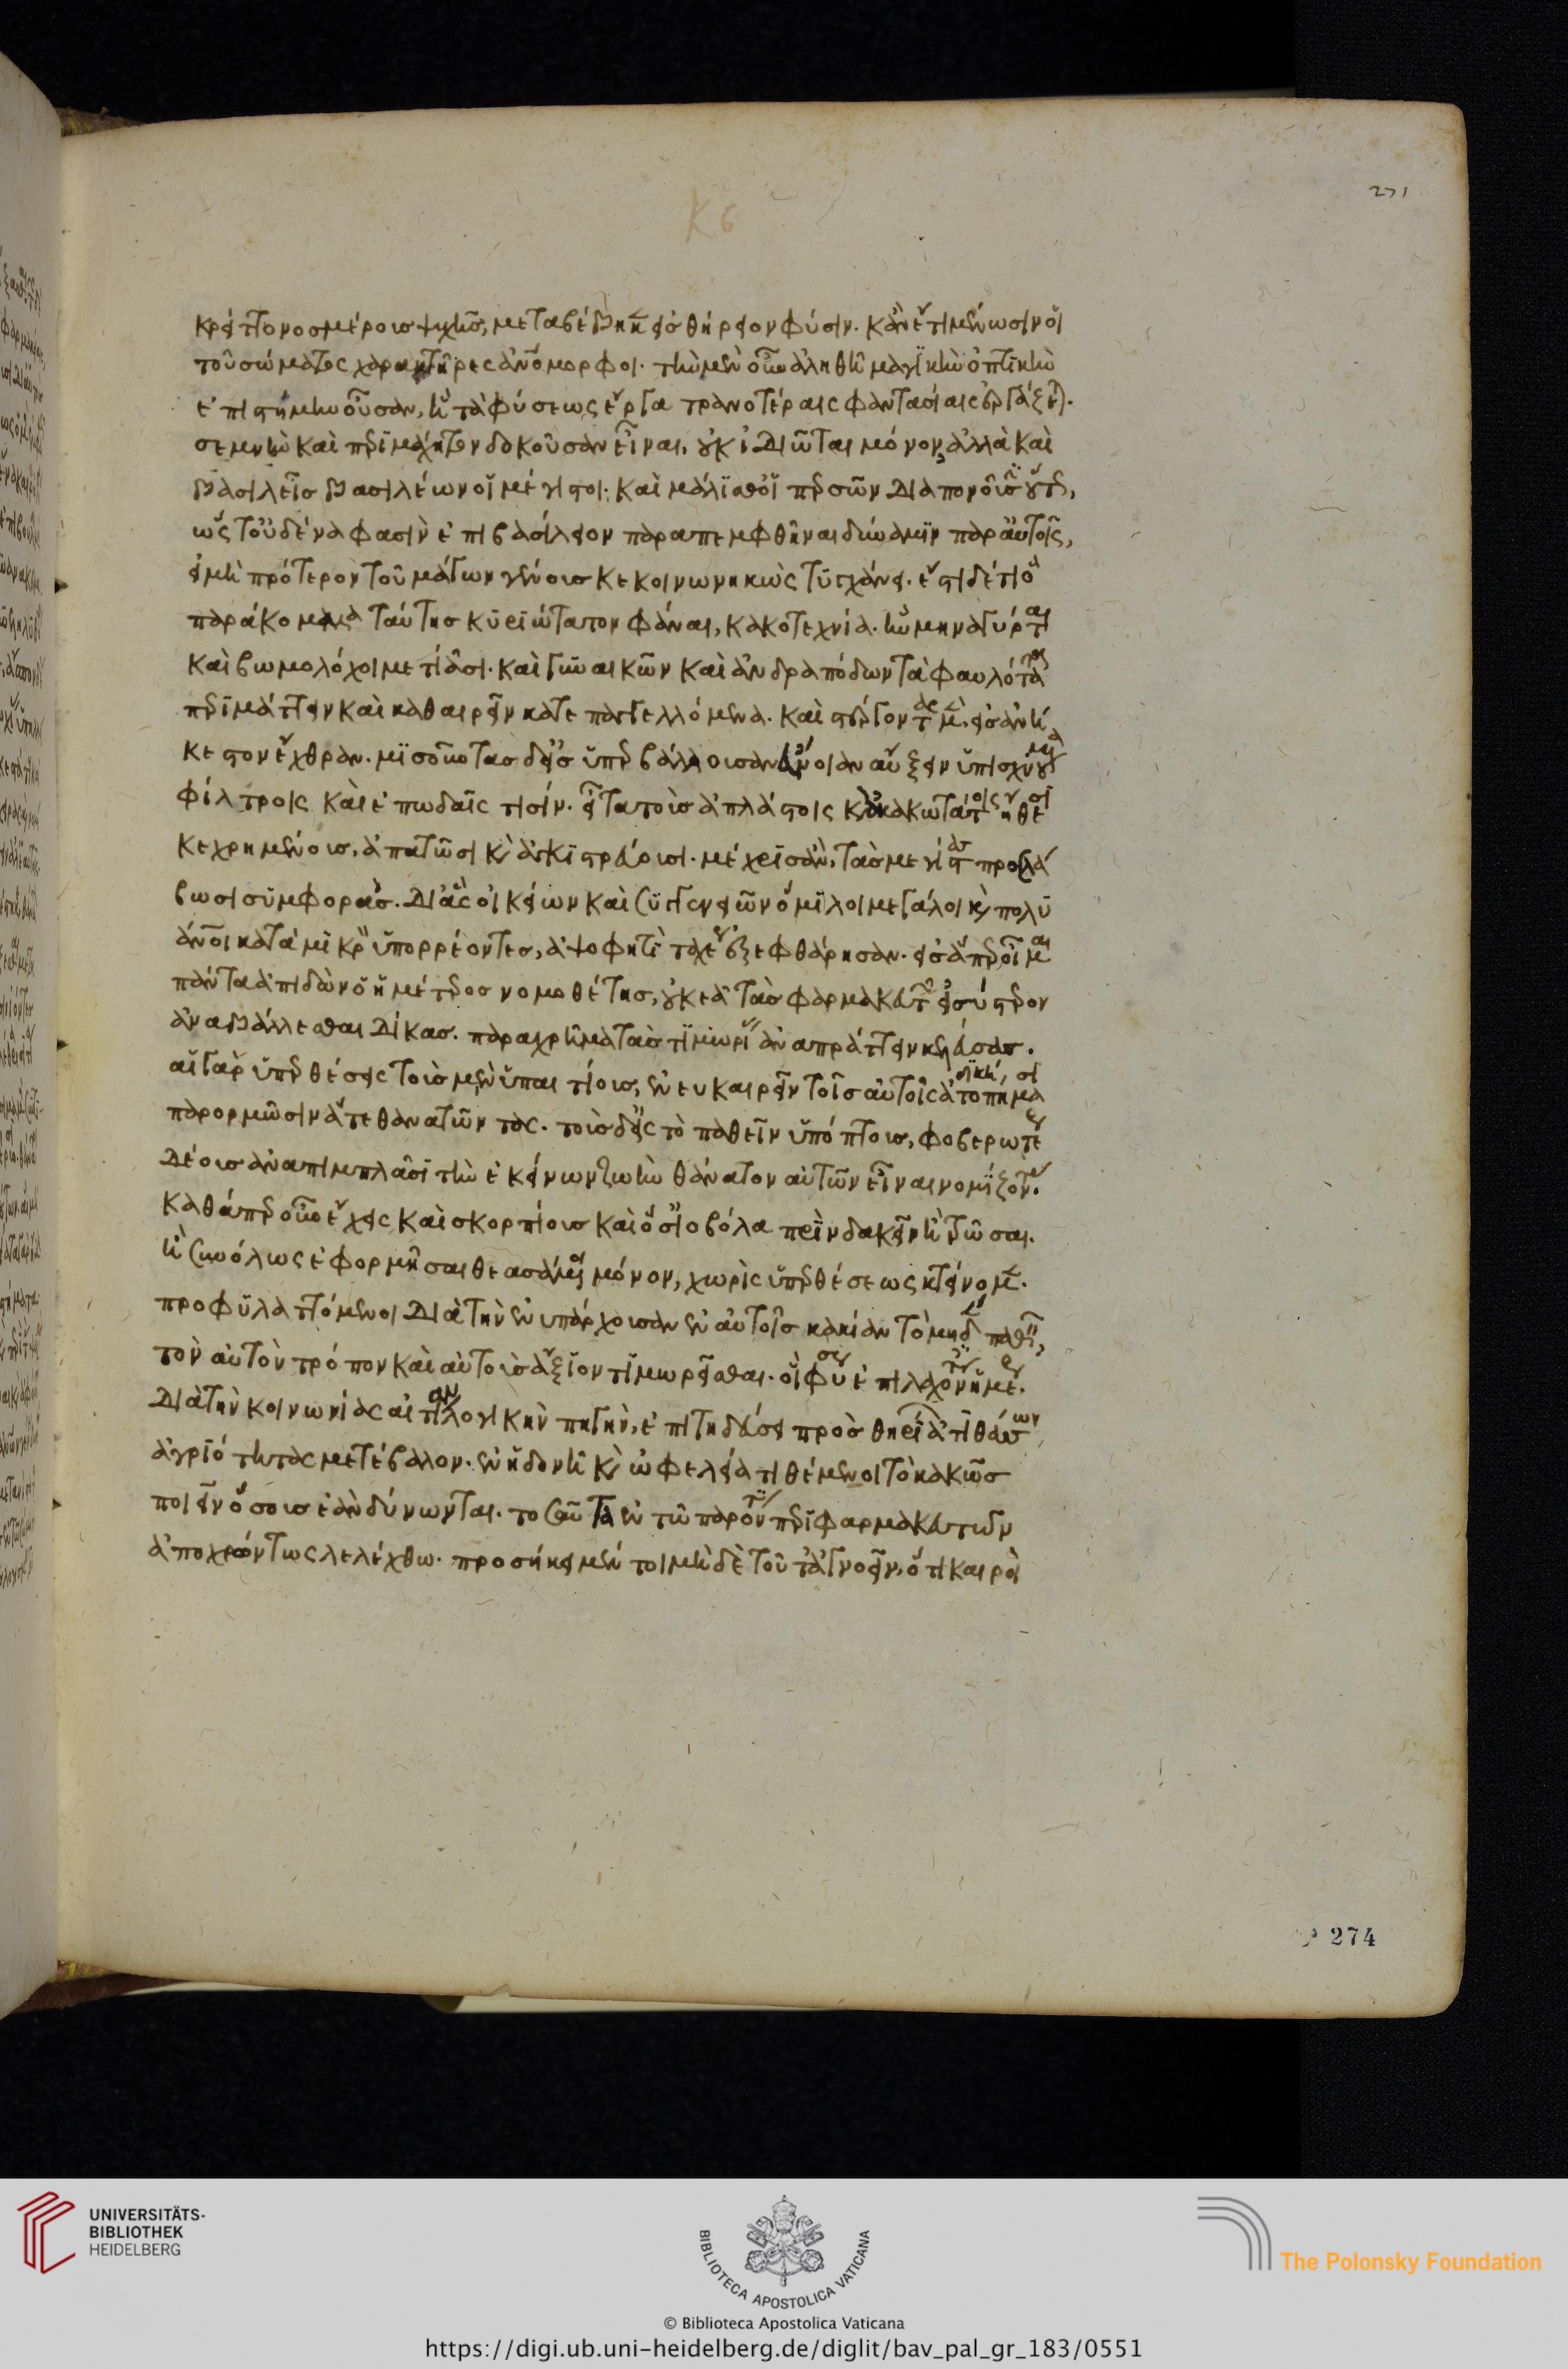 271
κρείττονος μέρους ψυχῆς, μεταβέβληκεν εἰς θήρειον φύσιν. κἂν ἔτι μένωσιν οἱ
τοῦ σώματος χαρακτῆρες ἀνθρωπόμορφοι. τὴν μὲν οὖν ἀληθῆ μαγικὴν ὀπτικὴν
ἐπιστήμην οὖσαν, ᾗ τὰ φύσεως ἔργα τρανοτέραις φαντασίαις αὐγάζεται.
σεμνὴν καὶ περιμάχητον δοκοῦσαν εἶναι, οὐκ ἰδιῶται μόνον, ἀλλὰ καὶ
βασιλεῖς βασιλέων οἱ μέγιστοι. καὶ μάλιστα οἱ περσῶν διαπονοῦσιν οὕτως,
ὥστ' οὐδένα φασὶν ἐπὶ βασίλειον παραπεμφθῆναι δύναμιν παρ' αὐτοῖς,
εἰ μὴ πρότερον τοῦ μάγων γένους κεκοινωνηκὼς τυγχάνει. ἔστι δέ τι ὃ
παράκομμα ταύτης κυριώτατον φάναι, κακοτεχνία. ἣν μηναγύρται
καὶ βωμολόχοι μετίασι. καὶ γυναικῶν καὶ ἀνδραπόδων τὰ φαυλότατα
περιμάττειν καὶ καθαιρεῖν κατεπαγγελλόμενα. καὶ στέργοντας μὲν εἰς ἀνή
κεστον ἔχθραν. μισοῦντας δ' εἰς ὑπερβάλλουσαν εὔνοιαν αὔξειν ὑπισχνούμενα
φίλτροις καὶ ἐπωδαῖς τισίν. εἶτα τοὺς ἀπλάστοις καὶ ἀκακωτάτοις ἤθεσι
κεχρημένους, ἀπατῶσι καὶ ἀγκιστρεύουσι. μέχρις ἂν, τὰς μεγίστας προσλά
βωσι συμφοράς. δι' ἃς οἰκείων καὶ συγγενειῶν ὅμιλοι μεγάλοι καὶ πολυ
άνθρωποι κατὰ μικρὸν ὑπορρέοντες, ἀψοφητὶ ταχέως ἐξεφθάρησαν. εἰς ἅπερ οἶμαι
πάντα ἀπιδὼν ὁ ἡμέτερος νομοθέτης, οὐκ ἐᾷ τὰς φαρμακευτῶν εἰς ὕστερον
ἀναβάλλεσθαι δίκας. παραχρῆμα τὰς τιμωρίας ἀναπράττειν κελεύσας.
αἱ γὰρ ὑπερθέσεις τοὺς μὲν ὑπαιτίους, ἐνευκαιρεῖν τοῖς αὐτοῖς ἀτοπήμασι
παρορμῶσιν ἅτε θανατῶντας. τοὺς δ' εἰς τὸ παθεῖν ὑπόπτους, φοβερωτέρου
δέους ἀναπιμπλᾶσι τὴν ἐκείνων ζωὴν θάνατον αὐτῶν εἶναι νομίζοντας.
καθάπερ οὖν ἔχεις καὶ σκορπίους καὶ ὅσα ἰοβόλα πρὶν δακεῖν ἢ τρῶσαι.
ἢ συνόλως ἐφορμῆσαι θεασάμενοι μόνον, χωρὶς ὑπερθέσεως κτείνομεν.
προφυλαττόμενοι διὰ τὴν ἐνυπάρχουσαν ἐν αὐτοῖς κακίαν τὸ μηδὲν παθεῖν,
τὸν αὐτὸν τρόπον καὶ αὐτοὺς ἄξιον τιμωρεῖσθαι. οἳ φύσεως ἐπιλαχόντες ἡμέρου.
διὰ τὴν κοινωνίας αἰτίαν λογικὴν πηγὴν, ἐπιτηδεύσει πρὸς θηρίων ἀτιθάσων
ἀγριότητας μετέβαλον. ἐν ἡδονῇ καὶ ὠφελείᾳ τιθέμενοι τὸ κακῶς
ποιεῖν ὅσους ἐὰν δύνωνται. τοσαῦτα ἐν τῷ παρόντι περὶ φαρμακευτῶν
ἀποχρώντως λελέχθω. προσήκει μέντοι μηδὲ τοῦτ' ἀγνοεῖν, ὅτι καιροὶ
274
UNIVERSITÄTS-
BIBLIOTHEK
HEIDELBERG
BIBLIOTECA APOSTOLICA VATICANA
The Polonsky Foundation
© Biblioteca Apostolica Vaticana
https://digi.ub.uni-heidelberg.de/diglit/bav_pal_gr_183/0551